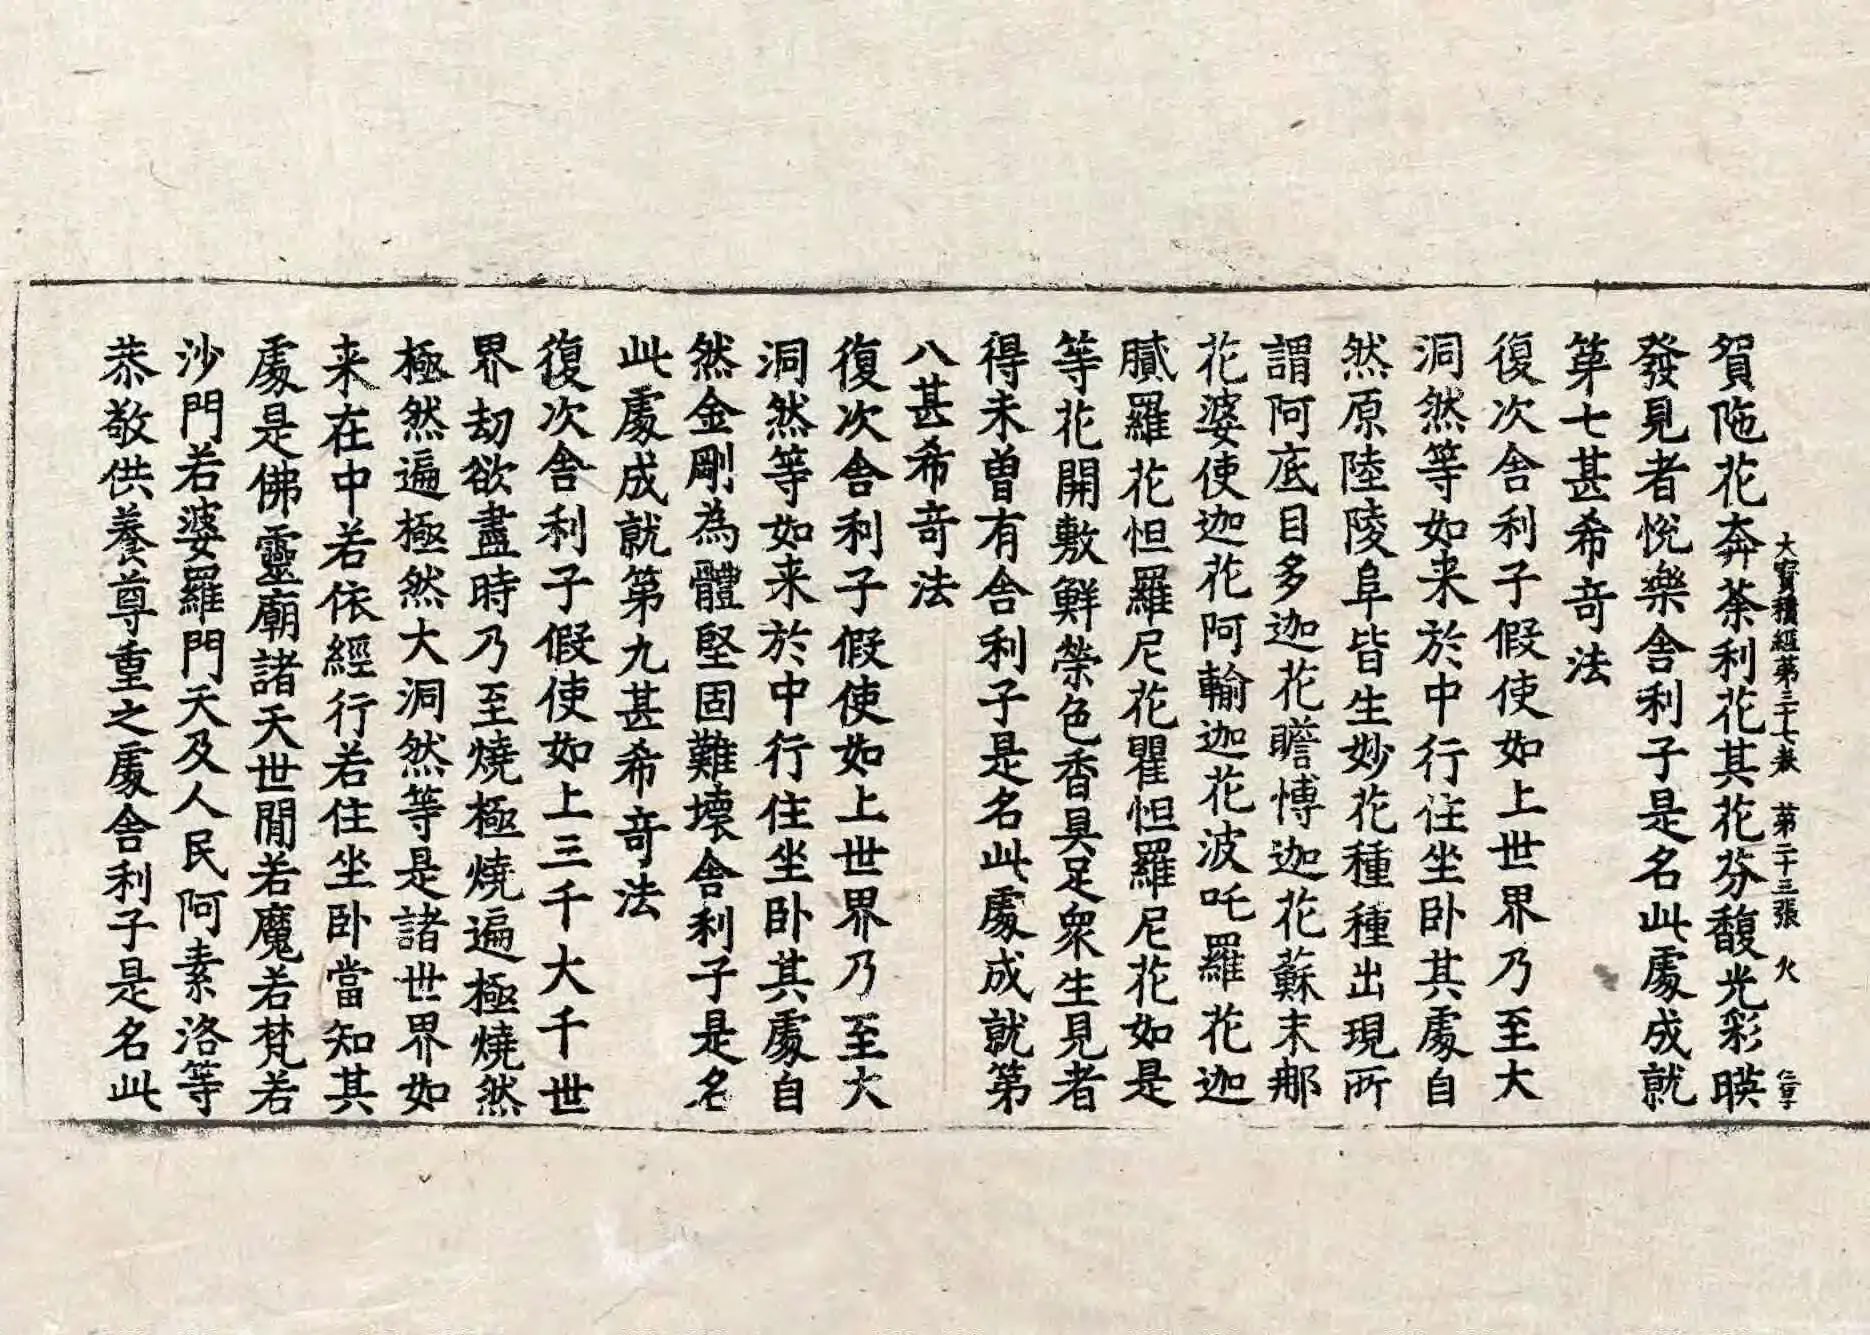 大寶積經第三十七卷 第二十三張 火 仁亨
賀陁花奔荼利花其花芬馥光彩暎
發見者悅樂舍利子是名此處成就
第七甚希竒法
復次舍利子假使如上世界乃至大
洞然等如来於中行住坐卧其處自
然原陸陵阜皆生妙花種種出現所
謂阿底目多迦花瞻博迦花蘇末那
花婆使迦花阿輸迦花波吒羅花迦
膩羅花怛羅尼花瞿怛羅尼花如是
等花開敷鮮榮色香具足衆生見者
得未曾有舍利子是名此處成就第
八甚希竒法
復次舍利子假使如上世界乃至大
洞然等如来於中行住坐卧其處自
然金剛為體堅固難壞舍利子是名
此處成就第九甚希竒法
復次舍利子假使如上三千大千世
界劫欲盡時乃至燒極燒遍極燒然
極然遍極然大洞然等是諸世界如
来在中若依經行若住坐卧當知其
處是佛靈廟諸天世閒若魔若梵若
沙門若婆羅門天及人民阿素洛等
恭敬供養尊重之處舍利子是名此